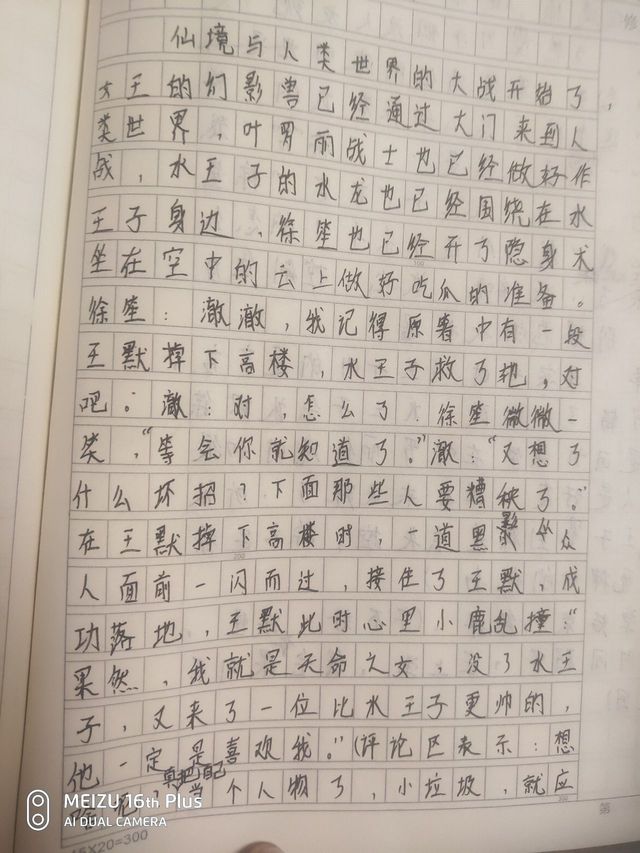 仙境与人类世界的大战开始了，
女王的幻影兽已经通过大门来到人
类世界，叶罗丽战士也已经做好作
战，水王子的水龙也已经围绕在水
王子身边，徐笙也已经开了隐身术
坐在空中的云上做好吃瓜的准备。
徐笙：澈澈，我记得原著中有一段
王默摔下高楼，水王子救了她，对
吧。澈：对，怎么了.徐笙微微一
笑，“等会你就知道了。”澈：“又想了
什么坏招？下面那些人要糟秧了。”
在王默摔下高楼时，一道黑影从众
人面前一闪而过，接住了王默，成
功落地，王默此时心里小鹿乱撞：“
果然，我就是天命之女，没了水王
子，又来了一位比水王子更帅的，
他一定是喜欢我。”(评论区表示：想
真把自己当个人物了，小垃圾，就应
MEIZU 16th Plus
AI DUAL CAMERA
15X20=300
第